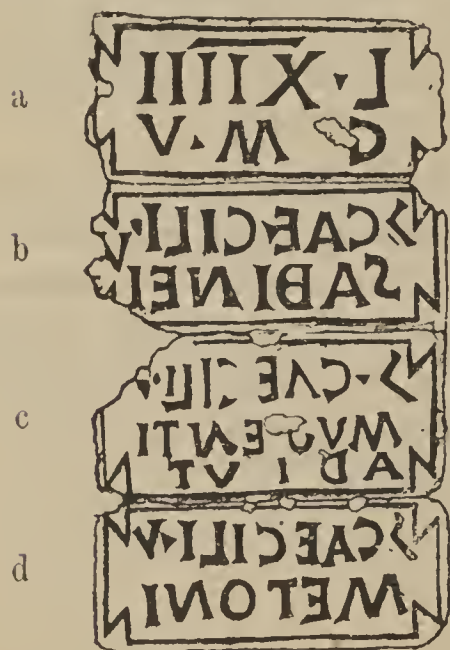 a
L · XIIII
G M · V
b
> CAE · CILI · V
SABINEI
c
> · CAECILI ·
AD I VT
d
> CAECILI · V
METONI